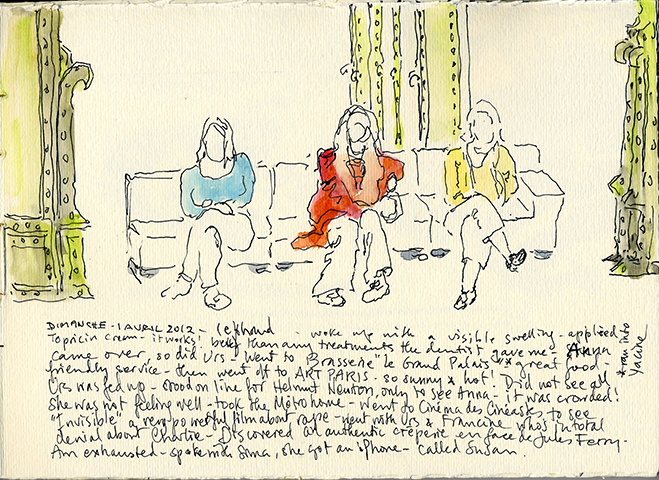 DIMANCHE - 1 AVRIL 2012 - - woke up with a visible swelling - applied
Topricin cream - it works! better than any treatments the dentist gave me - Anna
came over, so did Urs - Went to Brasserie "Le Grand Palais" * great food -
friendly service - then went off to ART PARIS - so sunny & hot! Did not see all
Urs was fed up - stood on line for Helmut Newton, only to see Anna - it was crowded!
She was not feeling well - took the Métro home - Went to Cinéma des Cinéastes to see
"Invisible" a very powerful film about rape - went with Urs & Francine who's in total
denial about Charlie - Discovered an authentic crêperie en face de Jules Ferry.
Am exhausted - spoke with Sima, she got an iphone - called Susan.
* ran into
Yacine